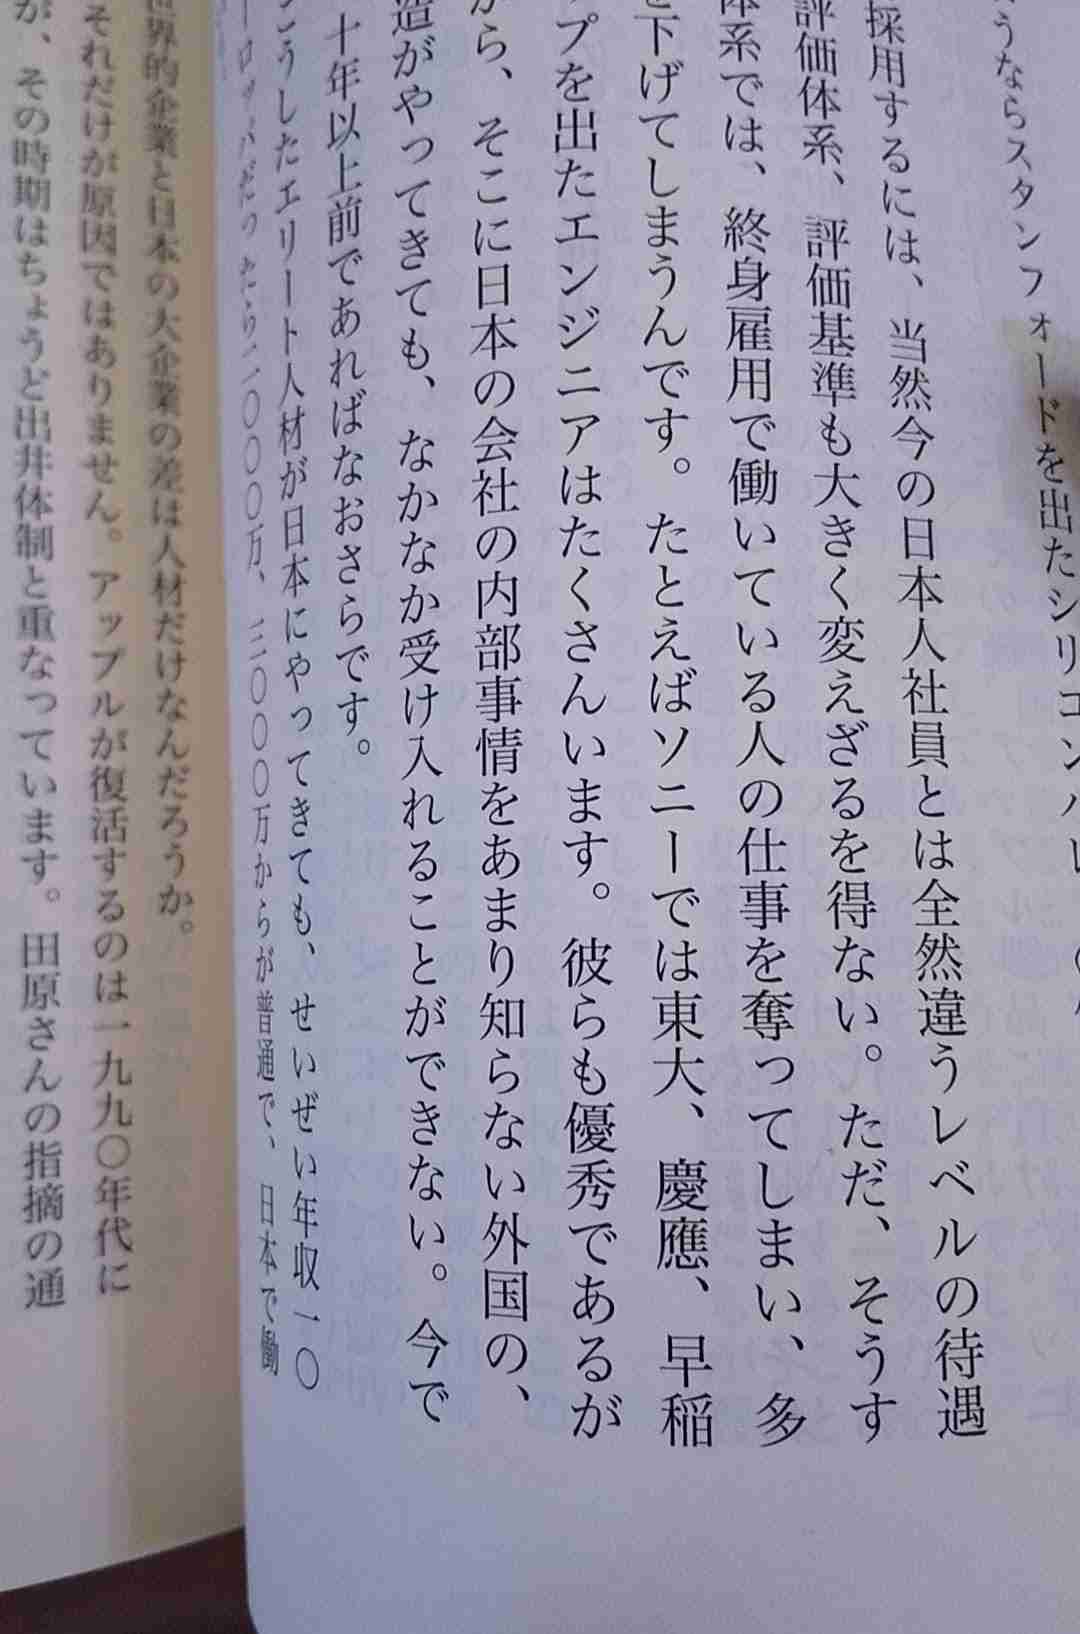 うならスタンフォードを出たシリコンバレ
採用するには、当然今の日本人社員とは全然違うレベルの待遇
評価体系、評価基準も大きく変えざるを得ない。ただ、そうす
体系では、終身雇用で働いている人の仕事を奪ってしまい、多
を下げてしまうんです。たとえばソニーでは東大、慶應、早稲
プを出たエンジニアはたくさんいます。彼らも優秀であるが
から、そこに日本の会社の内部事情をあまり知らない外国の、
造がやってきても、なかなか受け入れることができない。今で
十年以上前であればなおさらです。
こうしたエリート人材が日本にやってきても、せいぜい年収一〇
ーロッパだったら二〇〇〇万、三〇〇〇万からが普通で、日本で働
世界的企業と日本の大企業の差は人材だけなんだろうか。
それだけが原因ではありません。アップルが復活するのは一九九〇年代に
が、その時期はちょうど出井体制と重なっています。田原さんの指摘の通